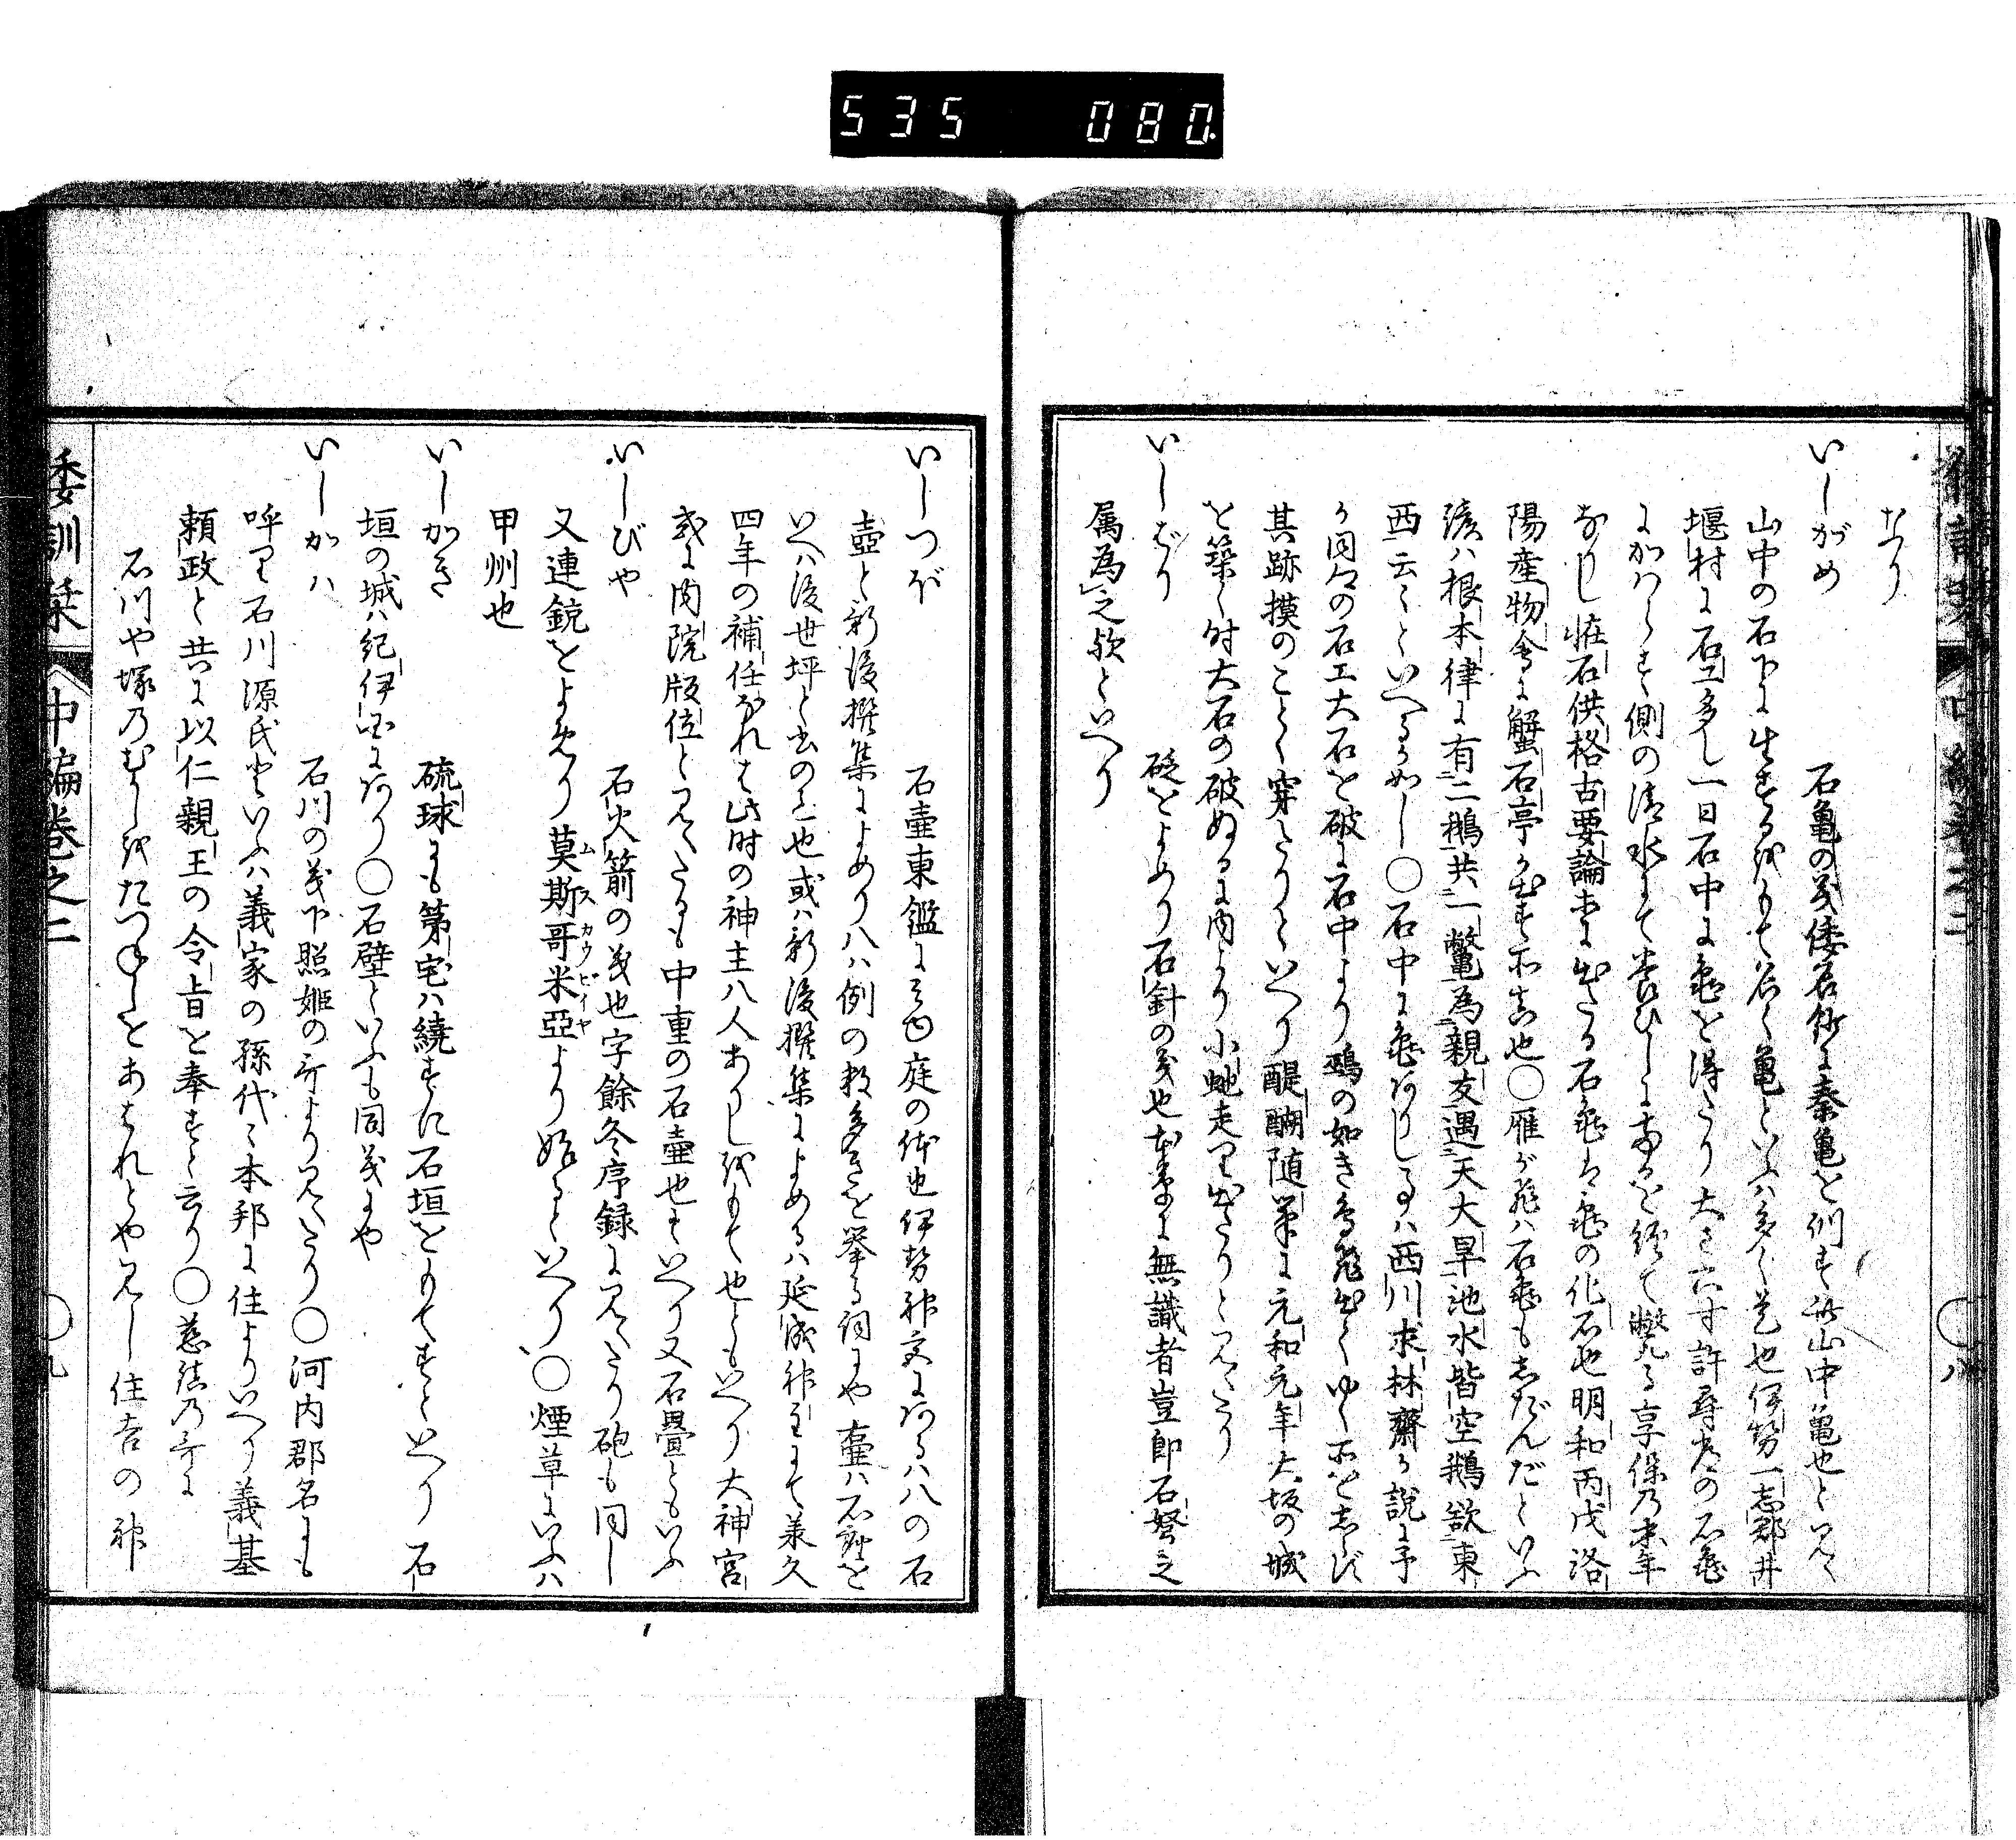 535 080
なり
いしがめ 石亀の義倭名鈔に秦亀を訓す此山中ノ亀也といへり
山中の石下に生するをもて名く亀といふハ多く是也伊勢一志郡井
堰村に石工多し一日石中に亀を得たり大さ六寸許尋常の石亀
にかハらす側の清水にて養ひしに
を経て斃たる享保乃末年
なりし 怪石供格古要論等に出たる石亀は亀の化石也明和丙戌洛
陽産物会に蟹石亭か出す所真也〇雁が飛ハ石亀もぢだんだといふ
諺ハ根本律に有二鵝共一鼈為親友遇天大旱池水皆空鵝欲東
西云々といへるか如し〇石中に亀ありし事ハ西川求林齋か説に予
か同名の石工大石を破に石中より鵶の如き鳥飛出てゆく所をしらず
其跡摸のことく穿たりといへり醍醐随筆に元和元年大坂の城
を築く時大石の破ぬるに内より小虵走り出たりと見えたり
いしばり 砭をよめり石針の義也本草に無識者豈即石砮之
属為之歟といへり
いしつぼ 石壷東鑑に見ゆ庭の体也伊勢神宮にある八の石
壺と新後撰集によめり八ハ例の数多きを挙る詞にや壷ハ石
を
いへハ後世坪と書のミ也或ハ新後撰集によめるハ延成神主にて承久
四年の補任なれは此時の神主八人ありしをもて也ともいへり大神宮
式に内院版位と見えたるも中重の石壷也といへり又石畳ともいふ
いしびや 石火箭の義也字餘冬序録に見えたり砲も同し
又連銃をよめり莫斯哥米亞ムスカウビイヤより始るといへり〇煙草にいふハ
甲州也
いしかき 硫球にも第宅ハ繞すに石垣をもてすといへり石
垣の城ハ紀伊国にあり〇石壁といふも同義にや
いしかハ 石川の義下照姫の哥より見えたり〇河内郡名にも
呼り石川源氏といふハ義家の孫代々本邦に住よりいへり義基
頼政と共に以仁親王の令旨を奉すと云り〇慈鎮乃哥に
石川や塚乃むかしをたつぬれとあはれとや見し住吉の神
倭訓栞 中編巻之二 〇九
中編巻之二 〇八